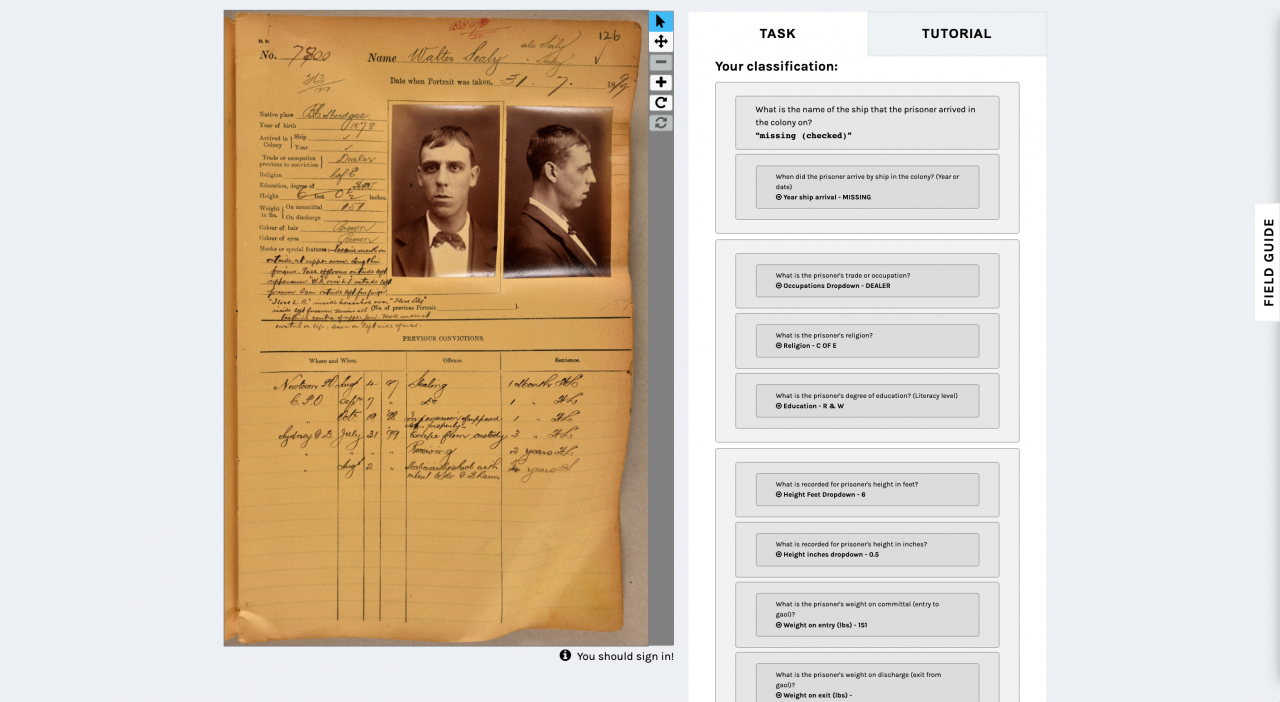 126
No. 7800 Name Walter Sealy
Date when Portrait was taken, 31. 7. 1899
Native place
Year of birth 1873
Arrived in Colony } Ship ✓
Year ✓
Trade or occupation previous to conviction } Dealer
Religion C of E.
Education, degree of R & W
Height 6 feet 0½ inches.
Weight in lbs. { On committal 151
On discharge
Colour of hair Brown
Colour of eyes Brown
Marks or special features:—
outside rt upper arm
"I love L. C." inside
(No. of previous Portrait ).
PREVIOUS CONVICTIONS.
Where and When. Offence. Sentence.
Newtown P.O Augt 4 97 Stealing 1 Month HL
C.P.O Sept 7 " Do 1 " HL
" Octr 19 '98 In possession of supposed stolen property 1 " HL
Sydney Q.S. July 31 '99 Escape from custody 3 " HL
" " " " Receiving 2 years HL
" Augt 2 " Maliciously shoot with intent to do G B harm years
You should sign in!
TASK
TUTORIAL
Your classification:
What is the name of the ship that the prisoner arrived in
the colony on?
"missing (checked)"
When did the prisoner arrive by ship in the colony? (Year or
date)
Year ship arrival - MISSING
What is the prisoner's trade or occupation?
Occupations Dropdown - DEALER
What is the prisoner's religion?
Religion - C OF E
What is the prisoner's degree of education? (Literacy level)
Education - R & W
What is recorded for prisoner's height in feet?
Height Feet Dropdown - 6
What is recorded for prisoner's height in inches?
Height inches dropdown - 0.5
What is the prisoner's weight on committal (entry to
gaol)?
Weight on entry (lbs) - 151
What is the prisoner's weight on discharge (exit from
gaol)?
Weight on exit (lbs) -
FIELD GUIDE